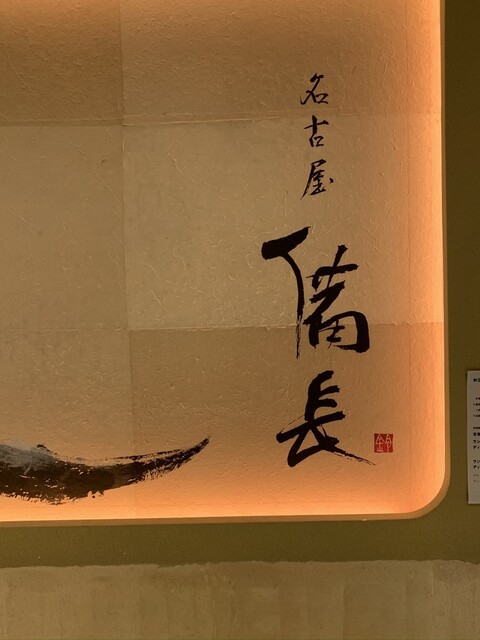 名古屋
備長